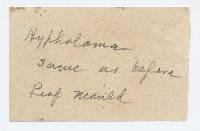 Hypholoma
same as before
Leaf mould